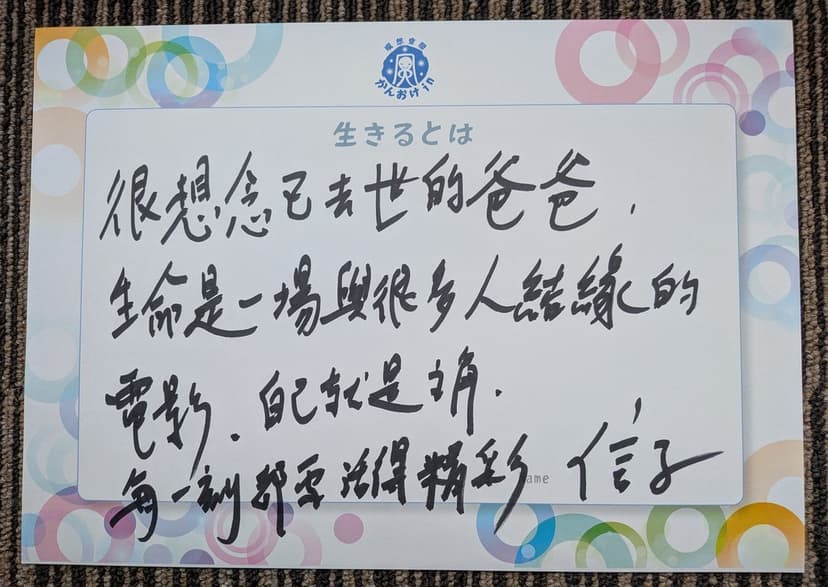 瞑想空間
かんおけin
生きるとは
很想念已去世的爸爸，
生命是一場與很多人結緣的
電影．自己就是主角．
每一刻都要活得精彩 信子
ame